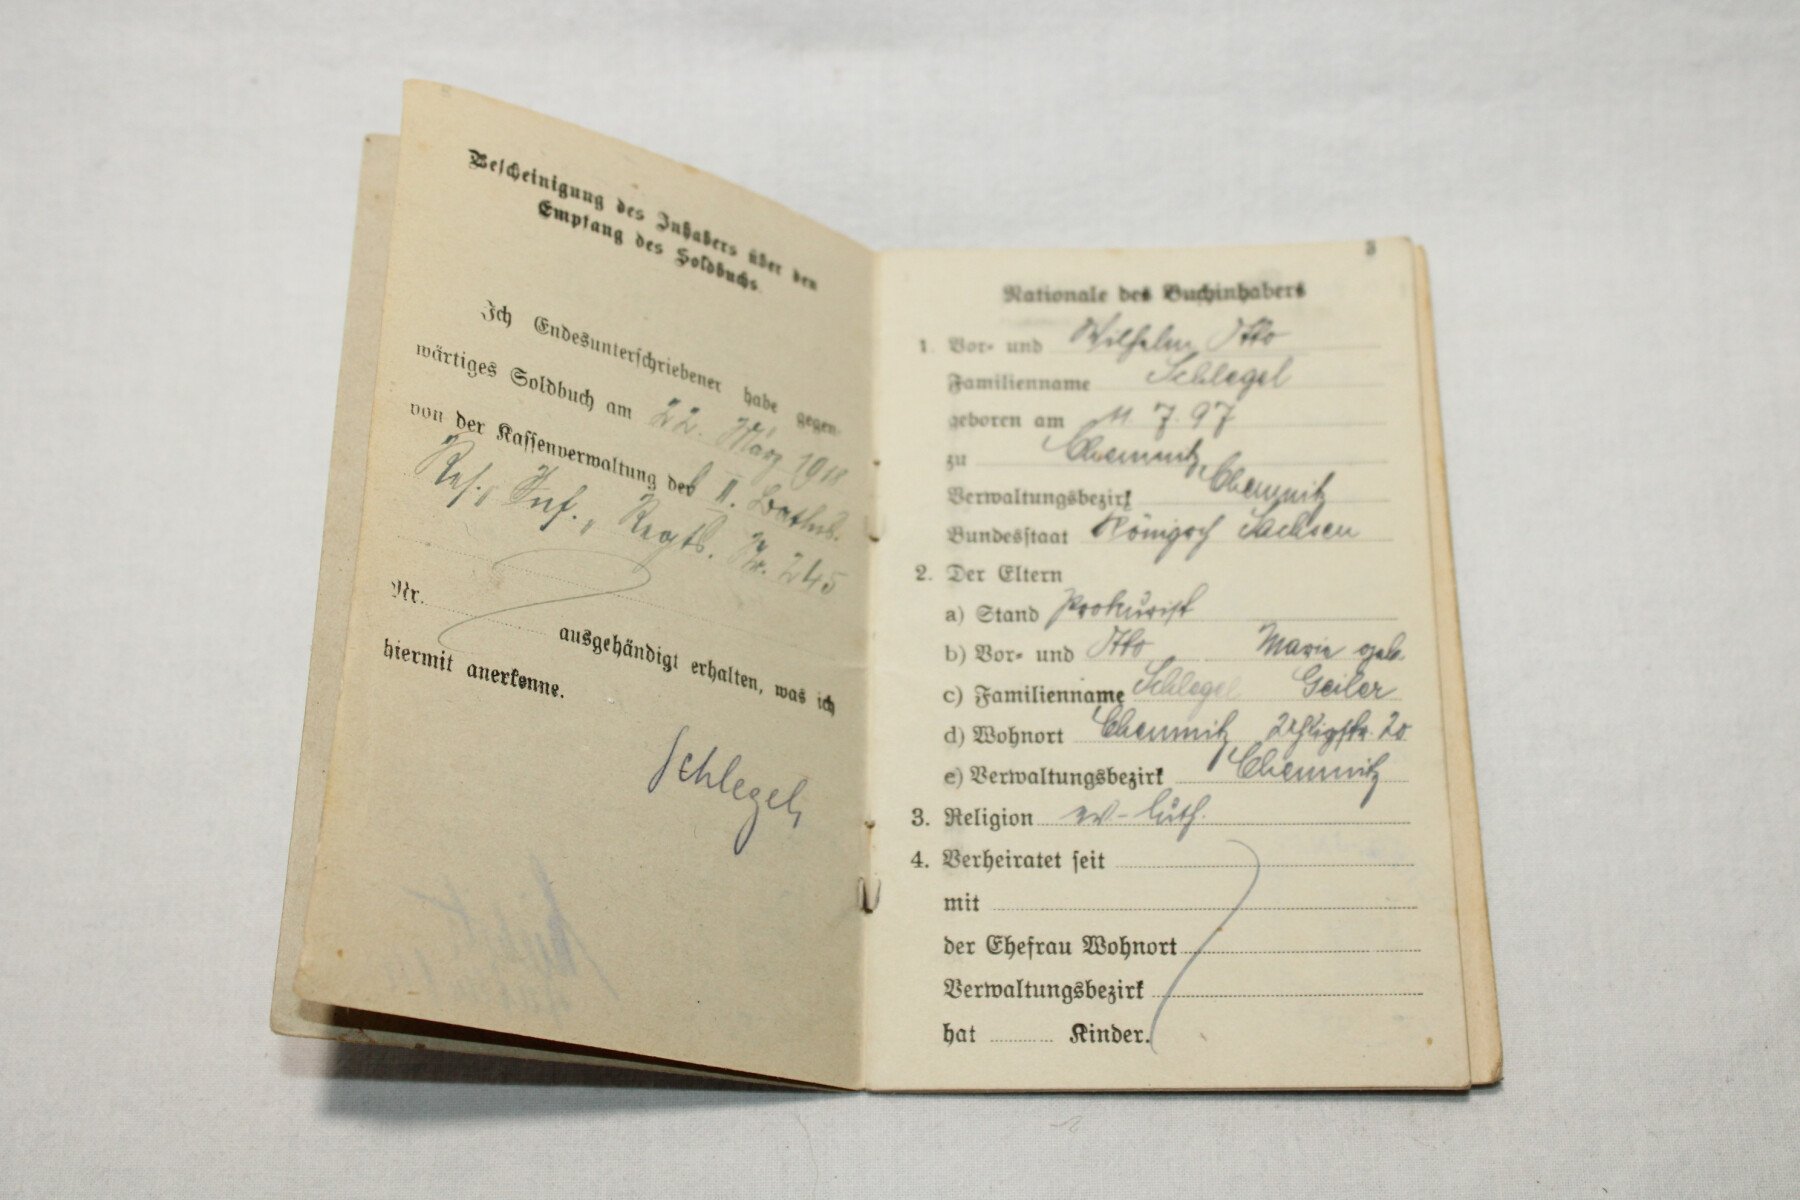 Bescheinigung des Inhabers über den
Empfang des Soldbuchs
Ich Endesunterschriebener habe gegen-
wärtiges Soldbuch am 22. März 1918
von der Kassenverwaltung der II. Batlns.
Res., Inf., Regts. Nr. 245
Nr. ausgehändigt erhalten, was ich
hiermit anerkenne.
Schlegel
3
Nationale des Buchinhabers
1. Vor- und Wilhelm Otto
Familienname Schlegel
geboren am 11 7. 97
zu Chemnitz
Verwaltungsbezirk Chemnitz
Bundesstaat Königrch Sachsen
2. Der Eltern
a) Stand Prokurist
b) Vor- und Otto Marie geb.
c) Familienname Schlegel Geiler
d) Wohnort Chemnitz 20
e) Verwaltungsbezirk Chemnitz
3. Religion ev-luth.
4. Verheiratet seit
mit
der Ehefrau Wohnort
Verwaltungsbezirk
hat Kinder.